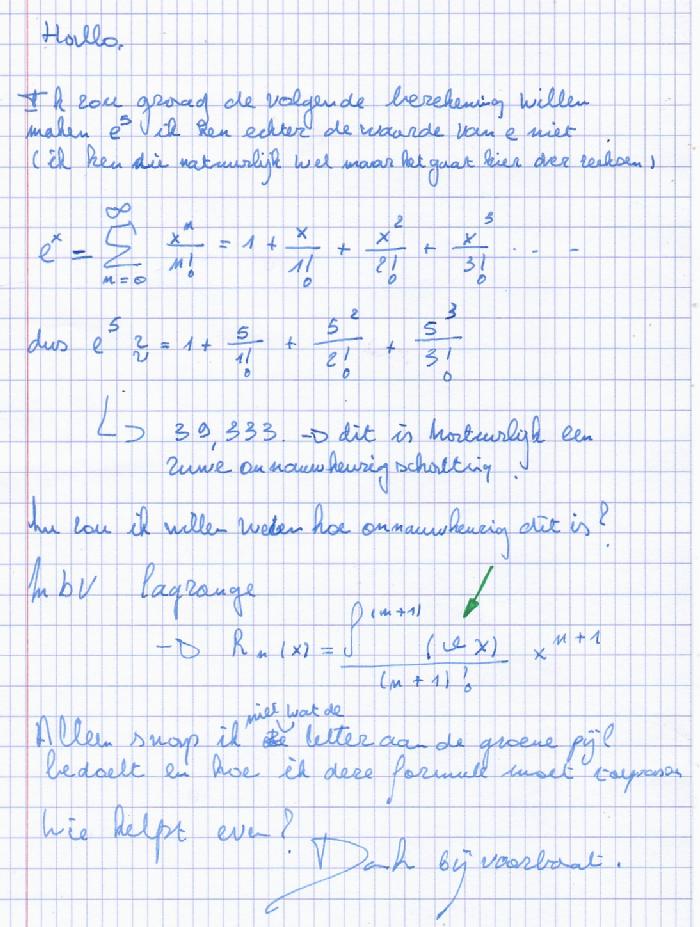 Hallo.
Ik zou graag de volgende berekening willen
maken e^5 ik ken echter de waarde van e niet
(ik ken die natuurlijk wel maar het gaat hier over reeksen)
e^x = ∑_{n=0}^{∞} x^n/n! = 1 + x/1! + x^2/2! + x^3/3! . . -
dus e^5 ≈ = 1 + 5/1! + 5^2/2! + 5^3/3!
↳ 39,333. → dit is natuurlijk een
ruwe onnauwkeurig schatting.
Nu zou ik willen weten hoe onnauwkeurig dit is?
M bv lagrange
→ R_n(x) = f^{(n+1)}(ϑx)/(n+1)! x^{n+1}
Alleen snap ik niet wat de letter aan de groene pijl
bedoelt en hoe ik deze formule moet toepassen
Wie helpt even?
Dank bij voorbaat.